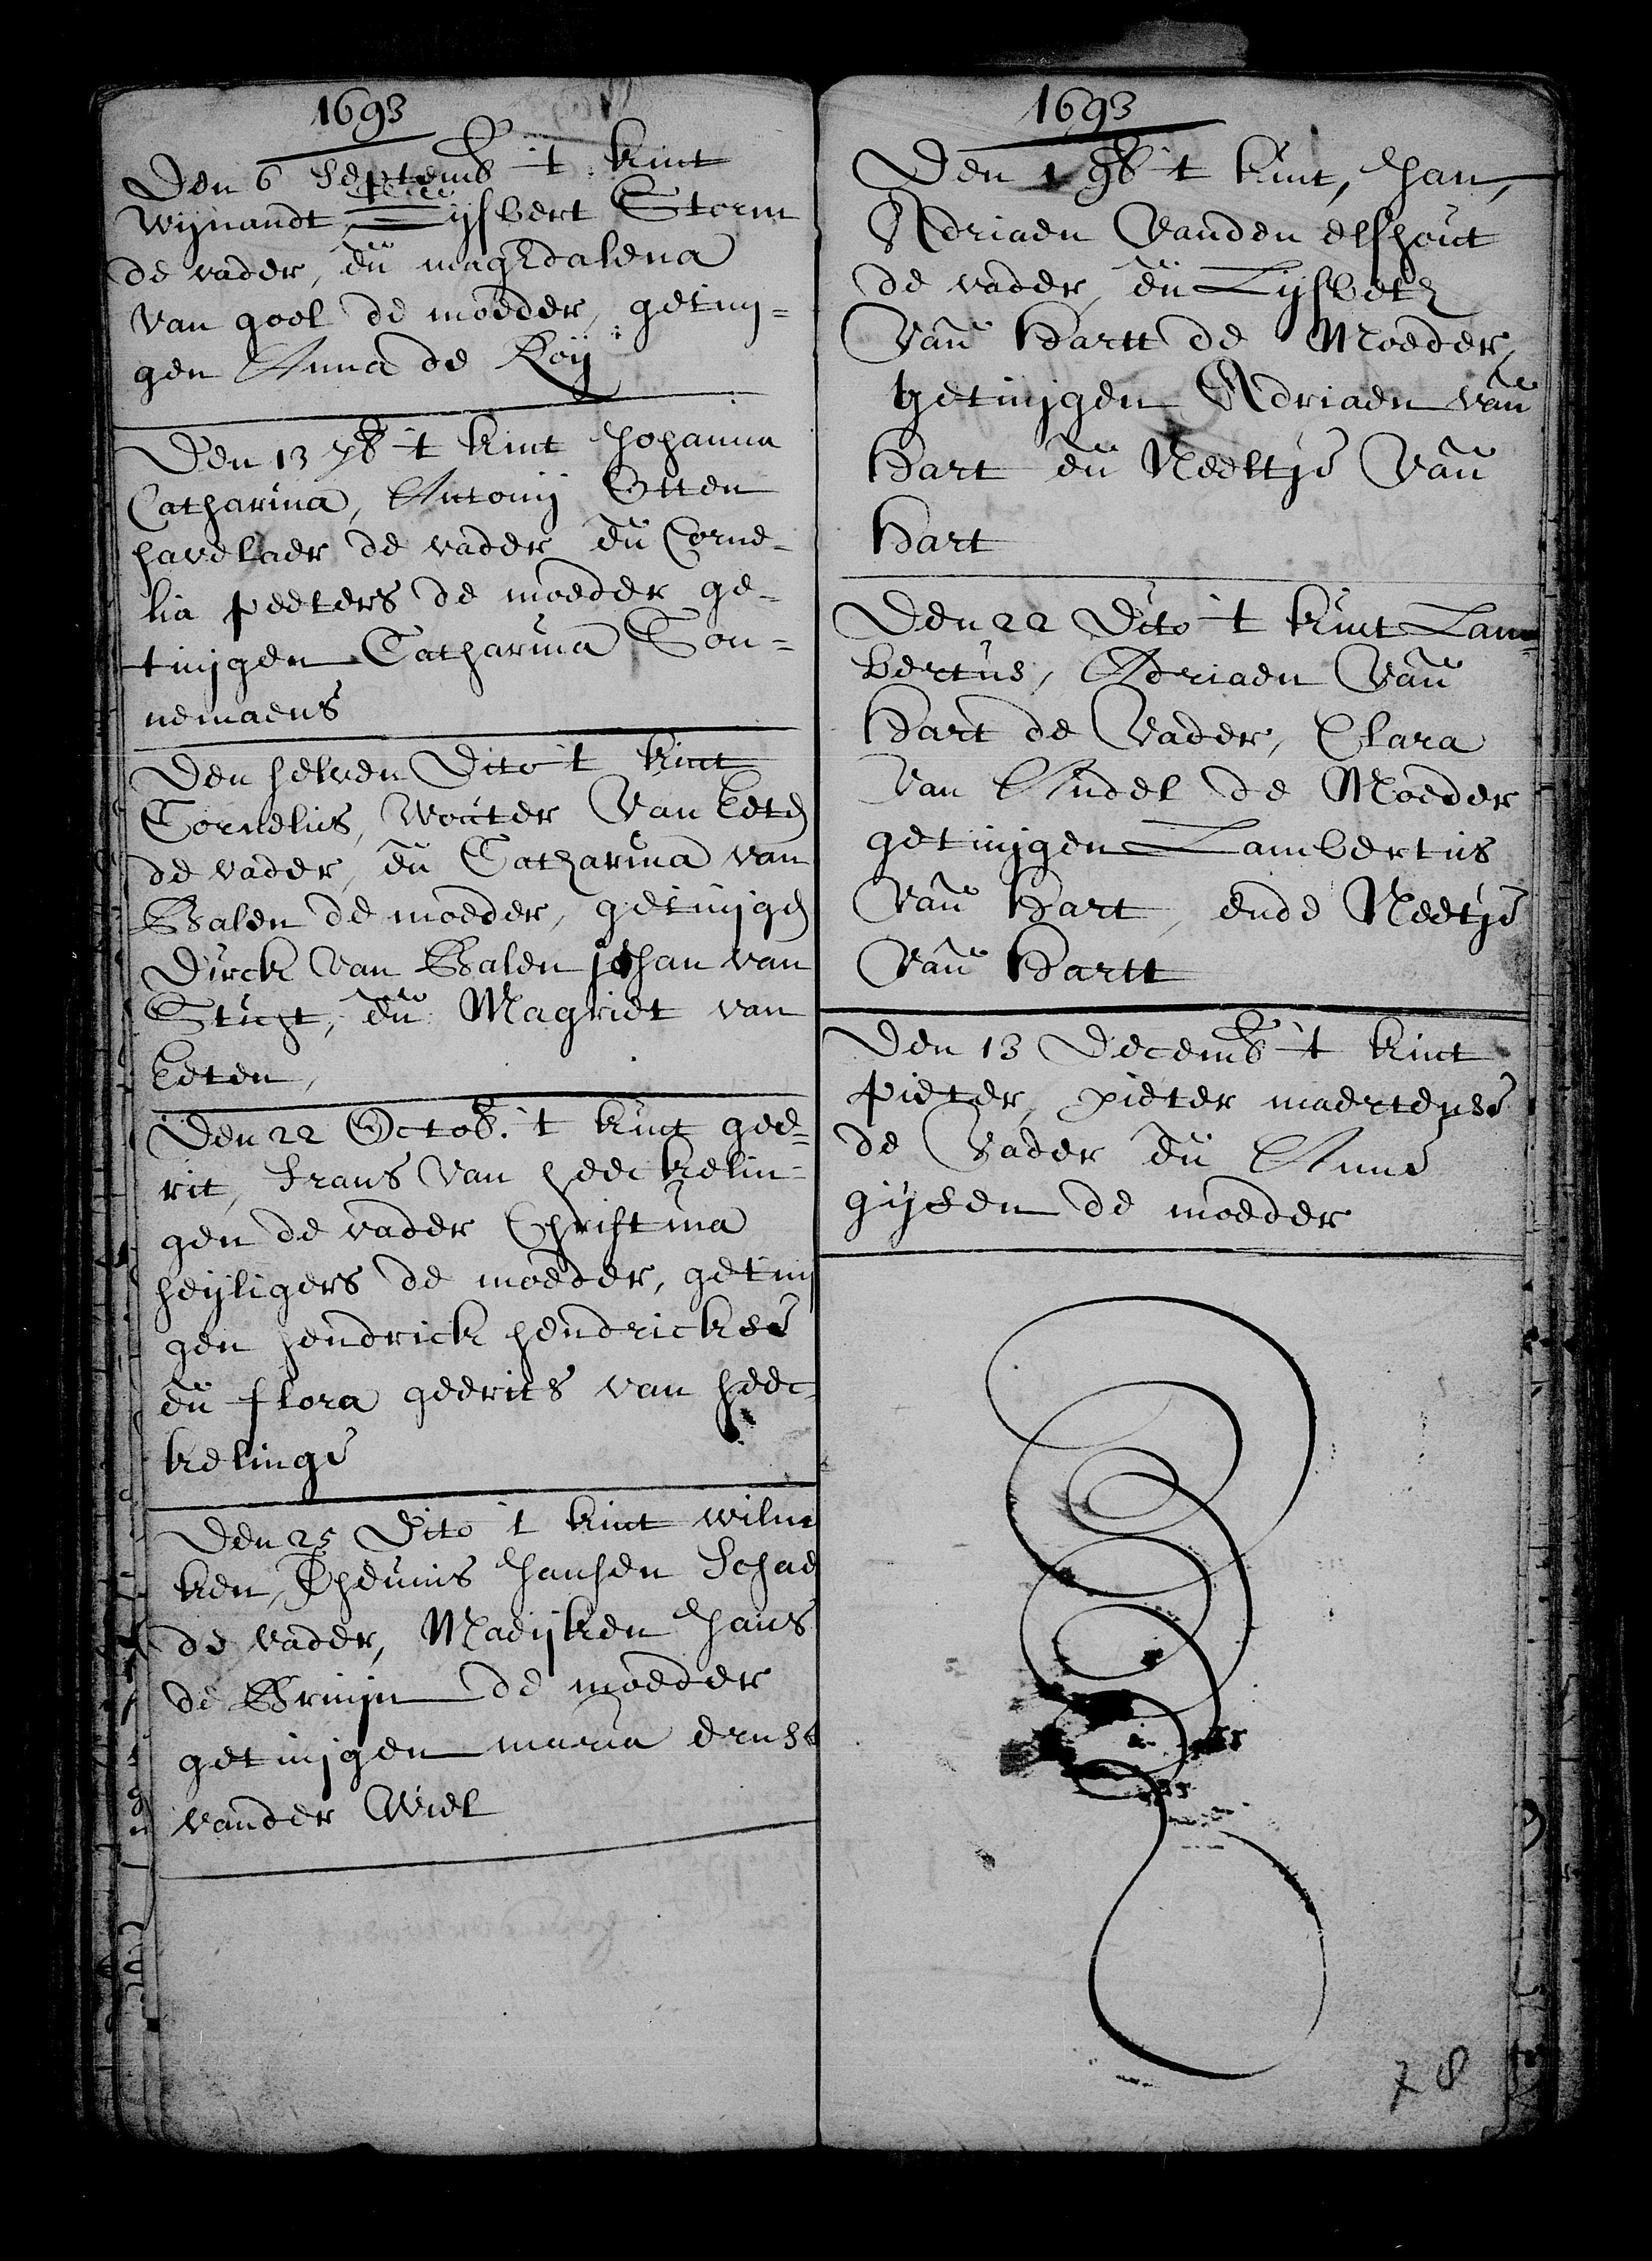 1693
Den 6 Septemb 't kint
Wijnandt, Gijsbert Storm
de vader, en magdalena
van goel de moeder, getuij=
gen Anna de Roij
Den 13 7b 't kint Johanna
Catharina, Antonij Otten
havelaer de vader en Corne-
lia peeters de moeder ge-
tuijgen Catharina Son=
nemaens
Den selven Dito 't kint
Cornelius, Wouter Van Eeten
de vader, en Catharina van
Balen de moeder, getuijgen
Dirck van Balen Johan van
Sticht, en Magriet van
Eeten,
Den 22 Octob. 't kint gee=
rit, Frans Van heeckelin-
gen de vader Christina
heijligers de moeder, getuij
gen hendrick hendrickse
en flora geerits van heec-
kelinge
Den 25 Dito 't kint wilm
ken, Theunis Jansen Schae
de vader, Maeijken Jans
de Bruijn de moeder
getuijgen maria ernst
vander Wiel
1693
Den 1 9b 't kint, Jan,
Adriaen Vanden elshout
de vader, en Lijsbeth
Van Hartt de Moeder,
getuijgen Adriaen van
Hart en Neeltje Van
Hart
Den 22 Dito 't kint Lam=
bertus, Adriaen Van
Hart de Vader, Clara
Van Andel de Moeder
getuijgen Lambertus
Van Hart, ende Neetje
Van Hartt
Den 13 Decemb 't kint
pieter, pieter maertense
de Vader en Anne
gijsen de moeder
78